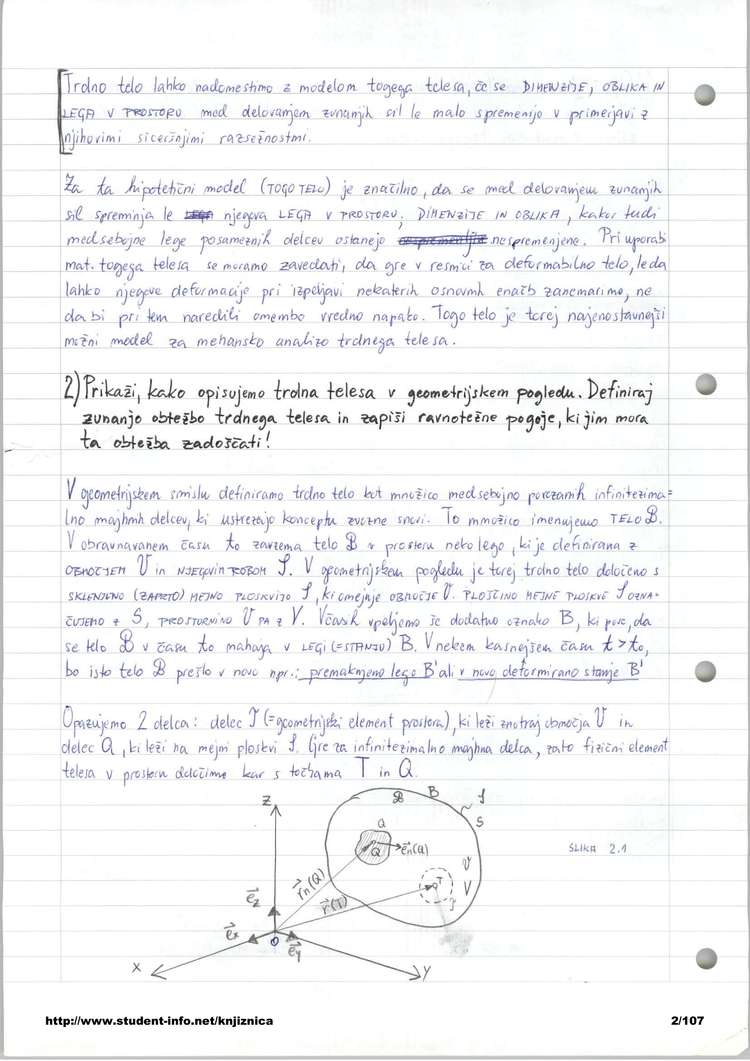 Trdno telo lahko nadomestimo z modelom togega telesa, če se DIMENZIJE, OBLIKA IN
LEGA V PROSTORU med delovanjem zunanjih sil le malo spremenijo v primerjavi z
njihovimi siceršnjimi razsežnostmi.
Za ta hipotetični model (TOGO TELO) je značilno, da se med delovanjem zunanjih
sil spreminja le njegova LEGA V PROSTORU; DIMENZIJE IN OBLIKA, kakor tudi
medsebojne lege posameznih delcev ostanejo nespremenjene. Pri uporabi
mat. togega telesa se moramo zavedati, da gre v resnici za deformabilno telo, le da
lahko njegove deformacije pri izpeljavi nekaterih osnovnih enačb zanemarimo, ne
da bi pri tem naredili omembo vredno napako. Togo telo je torej najenostavnejši
možni model za mehansko analizo trdnega telesa.
2) Prikaži, kako opisujemo trdna telesa v geometrijskem pogledu. Definiraj
zunanjo obtežbo trdnega telesa in zapiši ravnotežne pogoje, ki jim mora
ta obtežba zadoščati!
V geometrijskem smislu definiramo trdno telo kot množico medsebojno povezanih infinitezima=
lno majhnih delcev, ki ustrezajo konceptu zvezne snovi. To množico imenujemo TELO B.
V obravnavanem času t₀ zavzema telo B v prostoru neko lego, ki je definirana z
OBMOČJEM V in NJEGOVIM ROBOM S. V geometrijskem pogledu je torej trdno telo določeno s
SKLENJENO (ZAPRTO) MEJNO PLOSKVIJO S, ki omejuje OBMOČJE V. PLOŠČINO MEJNE PLOSKVE S OZNA=
ČUJEMO Z S, PROSTORNINO V PA Z V. Včasih vpeljemo še dodatno oznako B, ki pove, da
se telo B v času t₀ nahaja v LEGI (=STANJU) B. V nekem kasnejšem času t > t₀,
bo isto telo B prešlo v novo npr.: premaknjeno lego B' ali v novo deformirano stanje B'
Opazujemo 2 delca: delec T (=geometrijski element prostora), ki leži znotraj območja V in
delec Q, ki leži na mejni ploskvi S. Gre za infinitezimalno majhna delca, zato fizični element
telesa v prostoru določimo kar s točkama T in Q.
Z
B B S
S
Q
Q e⃗n(Q)
SLIKA 2.1
V
V
T
T
r⃗n(Q)
r⃗(T)
e⃗z
e⃗x
O
e⃗y
X
Y
http://www.student-info.net/knjiznica
2/107